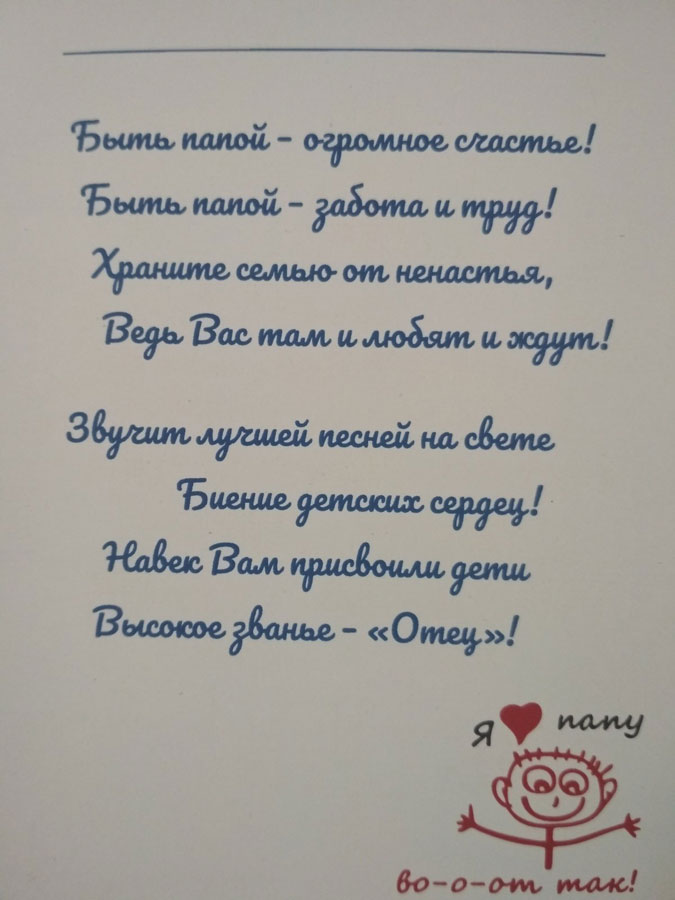 Быть папой - огромное счастье!
Быть папой - забота и труд!
Храните семью от ненастья,
Ведь Вас там и любят и ждут!
Звучит лучшей песней на свете
Биение детских сердец!
Навек Вам присвоили дети
Высокое званье - «Отец»!
Я ❤ папу
во-о-от так!